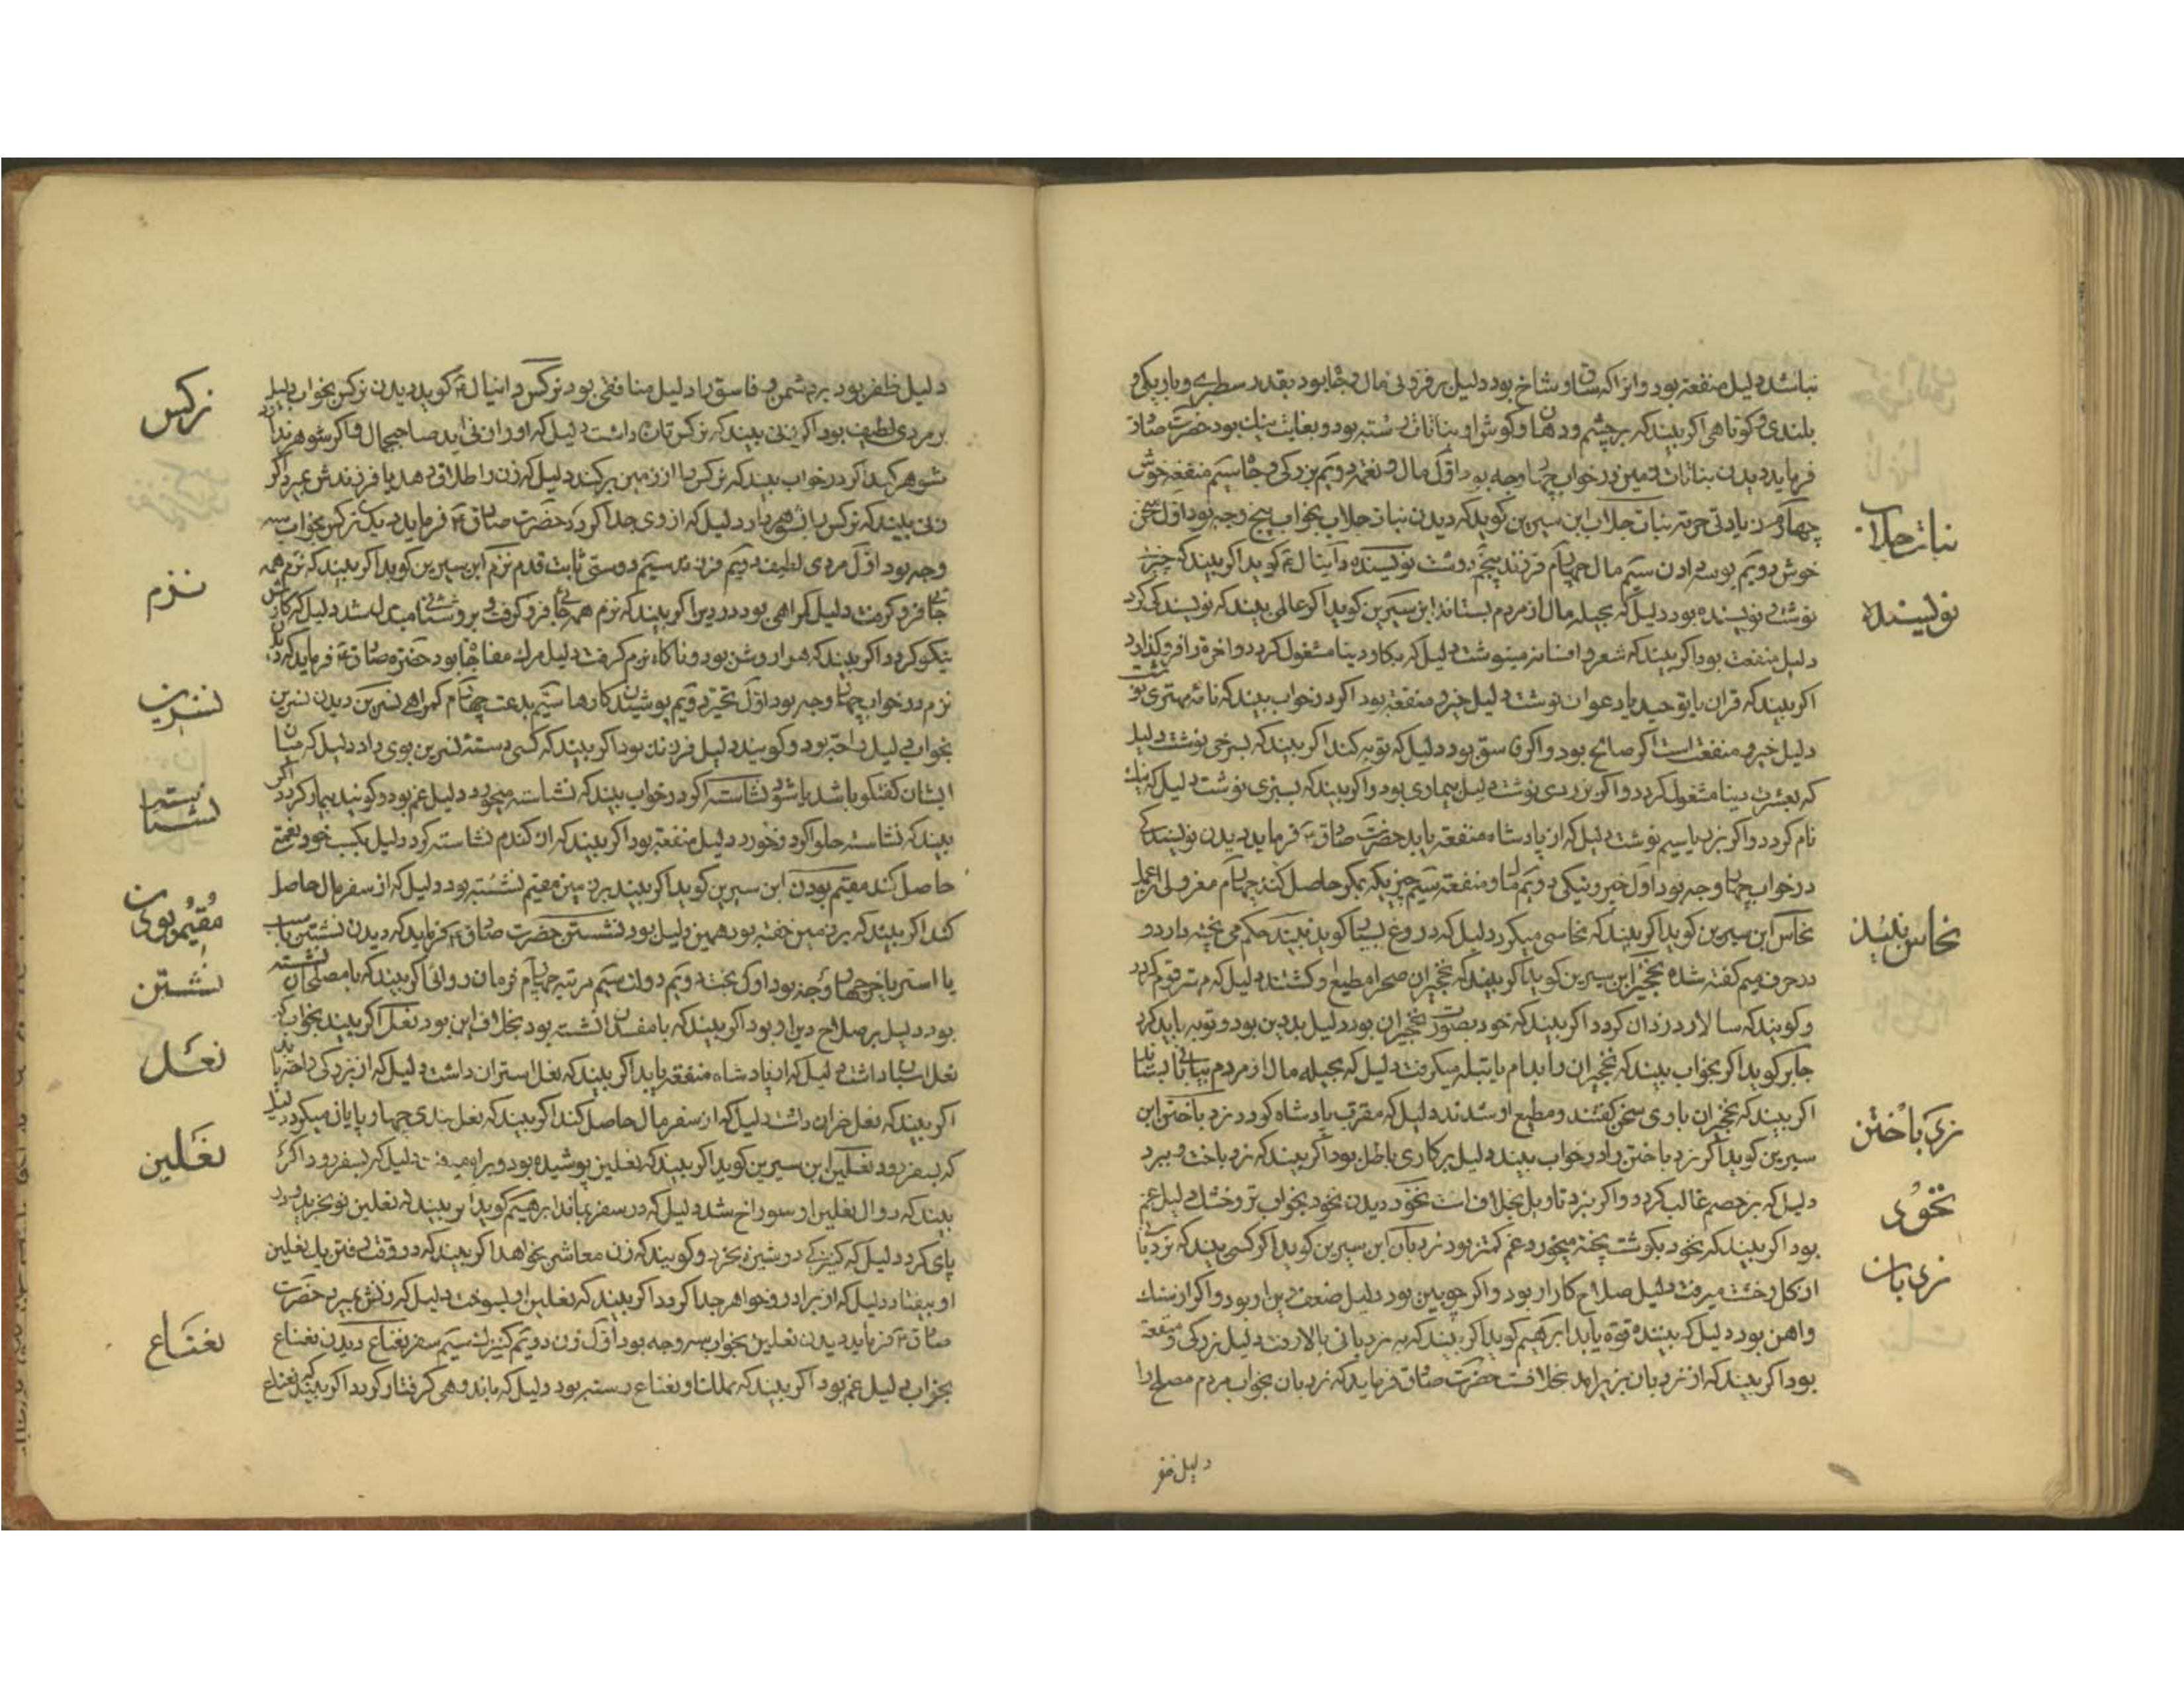 نباشد دلیل منفعة بود و انرا که ساق و شاخ بود دلیل بر فزونی مال و جاه بود بقدر سطبری و باریکی و
بلندی و کوتاهی اکر بیند که بر چشم و دهان و کوش او نباتات رسته بود و بغایت نیک بود حضرت صادق
فرماید دیدن نباتات زمین در خواب چهار وجه بود اول مال و نعمة دویم بزرکی و جاه سیم منفعة خوش
چهارم زیادتی حرمة نبات جلاب ابن سیرین کوید که دیدن نبات جلاب بخواب پنج وجه بود اول سخن
نبات جلاب
خوش دویم بوسه دادن سیم مال چهارم فرزند پنجم دوست نویسنده دانیال ع کوید اکر بیند که چیز
نوشتی نویسنده بود دلیل که بحیله مال از مردم بستاند ابن سیرین کوید اکر عالمی بیند که نویسندکی کرد
نویسنده
دلیل منفعت بود اکر بیند که شعر و افسانه مینوشت دلیل که بکار دینا مشغول کردد و اخرة را فروکذارد
اکر بیند که قران یا توحید یا دعوات نوشت دلیل خیر و منفعة بود اکر در خواب بیند که نامه مهتری نوشت
دلیل خیر و منفعت است اکر صالح بود و اکر فاسق بود دلیل که توبه کند اکر بیند که بسرخی نوشت دلیل
که بعشرت دینا مشغول کردد و اکر بزردی نوشت دلیل بیماری بود و اکر بیند که بسبزی نوشت دلیل که نیک
نام کردد و اکر بزر یا سیم نوشت دلیل که از پادشاه منفعة یابد حضرت صادق ع فرماید دیدن نویسندکی
در خواب چهار وجه بود اول خیر و نیکی دویم مال و منفعة سیم چیزیکه بمکر حاصل کند چهارم معزولی از عمل
نخاس ابن سیرین کوید اکر بیند که نخاسی میکرد دلیل که دروغ بسیار کوید نبیند حکم می پخته دارد و
نخاس نبیند
در حرف میم کفته شده نخجیر ابن سیرین کوید اکر بیند که نخجیران صحرا مطیع او کشتند دلیل که مهتر قوم کردد
و کویند که سالار دزدان کردد اکر بیند که خود بصورت نخجیران بود دلیل بد دین بود و توبه باید کرد
جابر کوید اکر بخواب بیند که نخجیران را بدام یا بتله میکرفت دلیل که بحیله مال از مردم بیابانی بستاند
اکر بیند که نخجیران با وی سخن کفتند و مطیع او شدند دلیل که مقرب پادشاه کردد نرد باختن ابن
نرد باختن
سیرین کوید اکر نرد باختن را در خواب بیند دلیل بر کاری باطل بود اکر بیند که نرد باخت و ببرد
دلیل که بر خصم غالب کردد و اکر نبرد تاویل بخلاف است نخود دیدن نخود بخواب تر و خشک دلیل غم
نخود
بود اکر بیند که نخود بکوشت پخته میخورد غم کمتر بود نردبان ابن سیرین کوید اکر کسی بیند که بر نردبان
نردبان
از کل و خشت میرفت دلیل صلاح کار او بود و اکر چوبین بود دلیل ضعف دین او بود و اکر از سنک
و اهن بود دلیل که بیننده قوة یابد ابرهیم کوید اکر بیند که بر نردبانی بالا رفت دلیل بزرکی و منفعة
بود اکر بیند که از نردبان بزیر امد بخلافست حضرت صادق فرماید که نردبان بخواب مردم مصلح را
دلیل ظفر
دلیل ظفر بود بر دشمن و فاسق را دلیل منافقی بود نرکس دانیال ع کوید دیدن نرکس بخواب دلیل
نرکس
بر مردی لطیف بود اکر زنی بیند که نرکس تازه داشت دلیل که او را زنی اید صاحبجمال و اکر شوهر ندارد
شوهر کند اکر در خواب بیند که نرکس را از زمین برکند دلیل که زن را طلاق دهد یا فرزندش بمیرد اکر
زنی بیند که نرکس را بشوهر داد دلیل که از وی جدا کردد حضرت صادق ع فرماید دیدن نرکس بخواب سه
وجه بود اول مردی لطیف دویم فرزند سیم دوستی ثابت قدم نزم ابن سیرین کوید اکر بیند که نزم همه
نزم
جا فرو کرفت دلیل کمراهی بود در دین اکر بیند که نزم همه جا فرو کرفت و بروشنائی مبدل شد دلیل که کارش
نیکو کردد اکر بیند که هوا روشن بود و ناکاه نزم کرفت دلیل مرک مفاجا بود حضرة صادق ع فرماید که دیدن
نزم در خواب چهار وجه بود اول تحیر دویم پوشیدن کارها سیم بدعت چهارم کمراهی نسرین دیدن نسرین
نسرین
بخواب دلیل راحة بود و کویند دلیل فرزند بود اکر بیند که کسی دسته نسرین بوی داد دلیل که میان
ایشان کفتکو باشد یا شر نشاسته اکر در خواب بیند که نشاسته میخورد دلیل غم بود و کویند بیمار کردد اکر
نشاسته
بیند که نشاسته حلوا کرد و خورد دلیل منفعة بود اکر بیند که از کندم نشاسته کرد دلیل بکسب خود نعمة
حاصل کند مقیم بودن ابن سیرین کوید اکر بیند بر زمین مقیم نشسته بود دلیل که از سفر مال حاصل
مقیم بودن
کند اکر بیند که بر زمین خفته بود همین دلیل بود نشستن حضرت صادق ع فرماید که دیدن نشستن باسب
یا استر یا خر چهار وجه بود اول بخت دویم دولت سیم مرتبه چهارم فرمان روائی اکر بیند که با مصلحان نشسته
نشستن
بود دلیل بر صلاح دین او بود اکر بیند که با مفسدان نشسته بود بخلاف این بود نعل اکر بیند بخواب که
نعل
نعل اسبان داشت دلیل که از پادشاه منفعة یابد اکر بیند که نعل استران داشت دلیل که از بزرکی راحة یابد
اکر بیند که نعل خران داشت دلیل که از سفر مال حاصل کند اکر بیند که نعل بندی چهارپایان میکرد دلیل
که بسفر رود نعلین ابن سیرین کوید اکر بیند که نعلین پوشیده بود و براه میرفت دلیل که بسفر رود اکر
نعلین
بیند که دوال نعلین او سوراخ شد دلیل که در سفر بماند ابرهیم کوید اکر بیند که نعلین نو بخرید و در
پای کرد دلیل که کنیزکی دوشیزه بخرد و کویند که زن معاشر بخواهد اکر بیند که در وقت رفتن یک نعلین
او بیفتاد دلیل که از برادر و خواهر جدا کردد اکر بیند که نعلین او بسوخت دلیل که زنش بمیرد حضرت
صادق ع فرماید دیدن نعلین بخواب سه وجه بود اول زن دویم کنیزک سیم سفر نعناع دیدن نعناع
نعناع
بخواب دلیل غم بود اکر بیند که بملک او نعناع رسته بود دلیل که باندوهی کرفتار کردد اکر بیند که نعناع